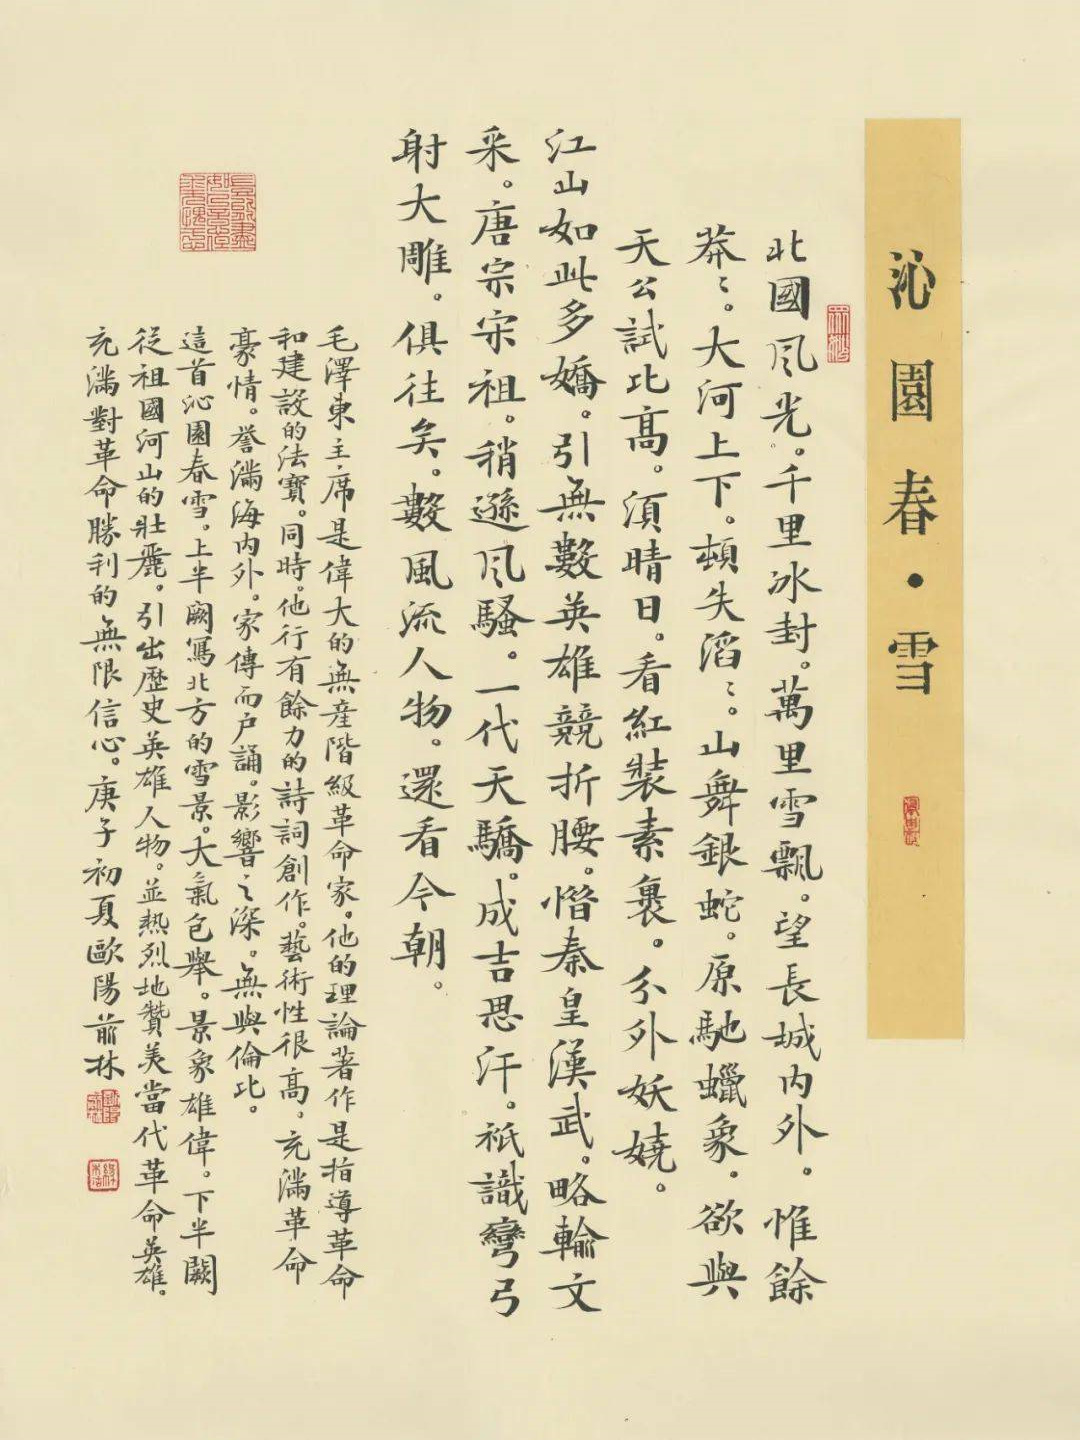 沁園春·雪
北國风光。千里冰封。萬里雪飄。望長城内外。惟餘
莽〻。大河上下。頓失滔〻。山舞銀蛇。原馳蠟象。欲與
天公試比高。須晴日。看紅裝素裹。分外妖嬈。
江山如此多嬌。引無數英雄競折腰。惜秦皇漢武。略輸文
采。唐宗宋祖。稍遜风騷。一代天驕。成吉思汗。祇識彎弓
射大雕。俱往矣。數風流人物。還看今朝。
毛澤東主席是偉大的無産階級革命家。他的理論著作是指導革命
和建設的法寶。同時。他行有餘力的詩詞創作。藝術性很高。充滿革命
豪情。誉滿海内外。家傳而户誦。影響之深。無與倫比。
這首沁園春雪。上半闕寫北方的雪景。大氣包舉。景象雄偉。下半闕
從祖國河山的壯麗。引出歷史英雄人物。並熱烈地贊美當代革命英雄。
充滿對革命勝利的無限信心。庚子初夏歐陽前林